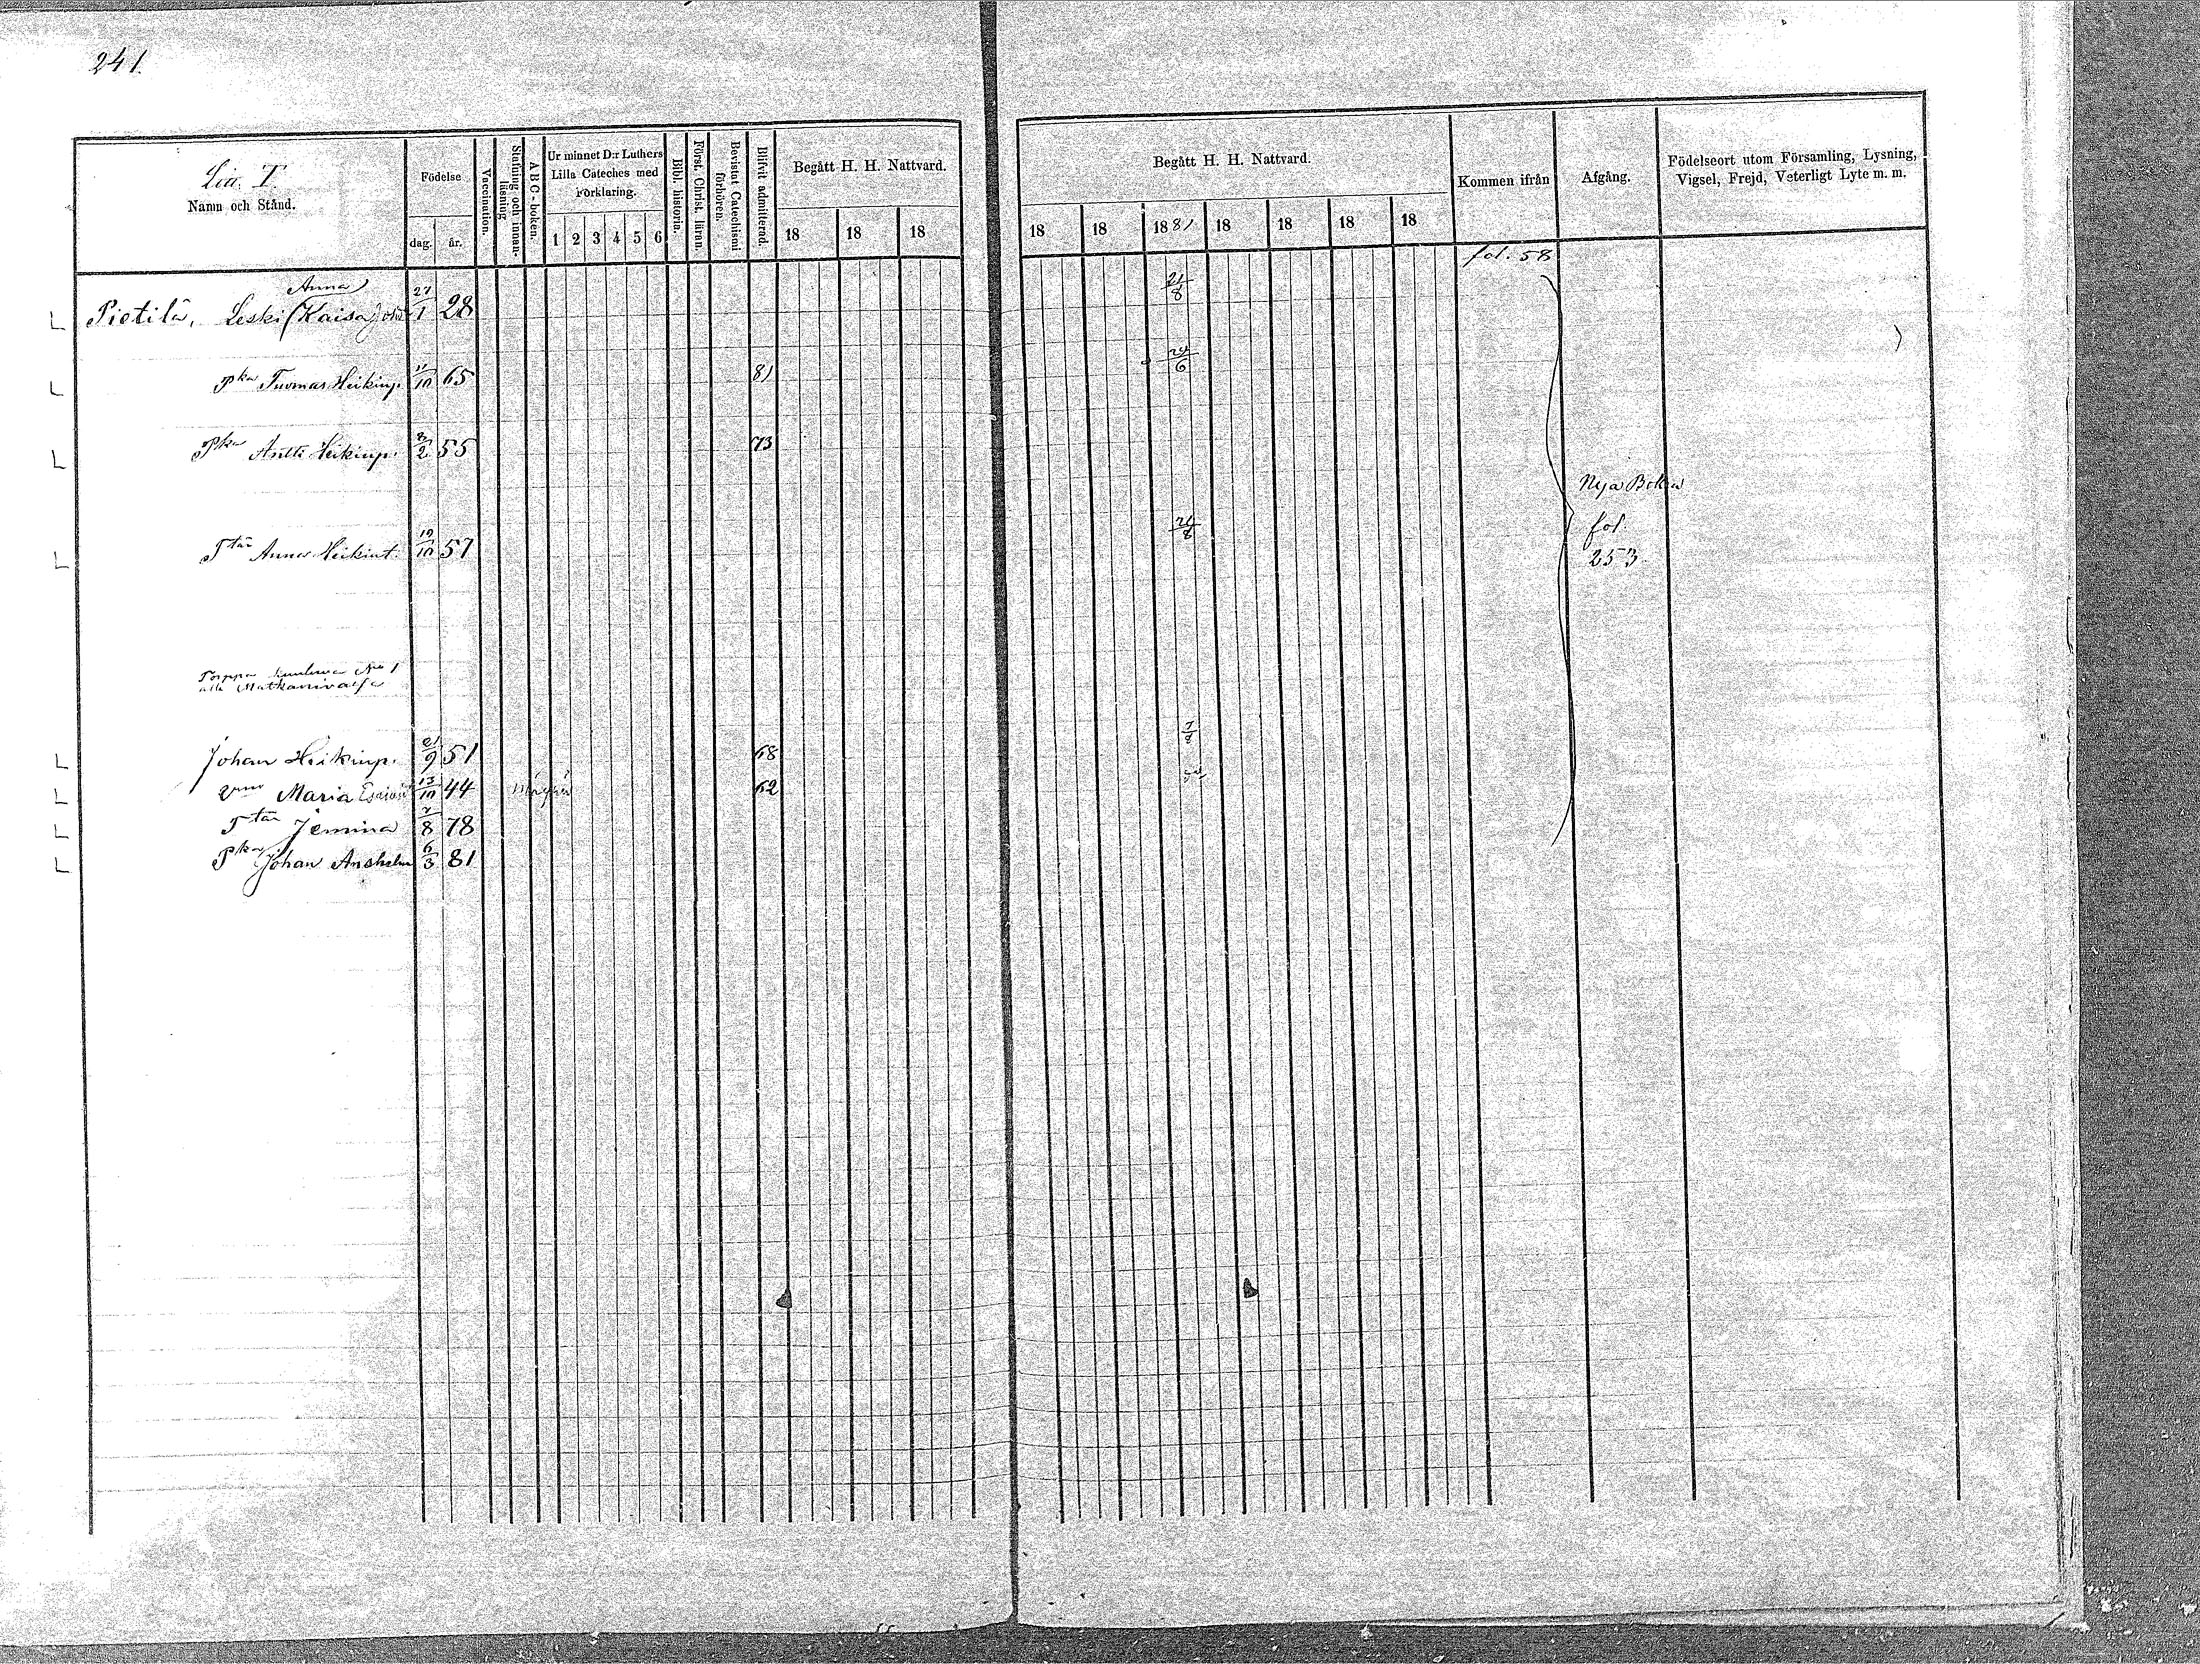 241.
Lia. T.
Namn och Stånd.
Födelse
dag. år.
Vaccination.
Stafning och innanläsning
ABC-boken.
Ur minnet D:r Luthers
Lilla Cateches med
Förklaring.
1 2 3 4 5 6
Bibl. historia.
Först. Christ. läran.
Bevistat Catechismi
förhören.
Blifvit admitterad.
Begått H. H. Nattvard.
18 18 18
Begått H. H. Nattvard.
18 18 1881 18 18 18 18
Kommen ifrån
Afgång.
Födelseort utom Församling, Lysning,
Vigsel, Frejd, Veterligt Lyte m. m.
fol. 58
Anna
Pietilä, Leski (Kaisa) 27/1 28 21/8
Pka Tuomas Heikinp. 11/10 65 81 24/6
Pka Antti Heikinp. 8/2 55 73
Nya Boken
Ttär Anna Heikint. 19/10 57 21/8
fol.
253
Torppa No 1
Johan Heikinp. 21/9 51 68 7/8
Maria 13/10 44 62
Ttär Jemina 7/8 78
Pka Johan Anshelm 6/3 81